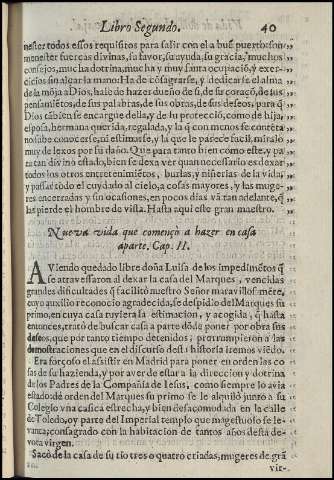 Libro Segundo. 40
nester todos essos requisitos para salir con el a buẽ puerto: son
menester fuerças divinas, su favor, su ayuda, su gracia, muchos
consejos, mucha dotrina, mucha y muy santa ocupació, y exer-
cicios sin alçar la mano. Ha de cõsagrarse, y dedicarse el alma
de la mõja a Dios, hale de hazer dueño de sì, de su coraçõ, de sus
pensamiẽtos, de sus palabras, de sus obras, de sus deseos, para q̃
Dios tãbien se encargue della, y de su proteccio, como de hija,
esposa, hermana querida, regalada, y la q̃ con menos se contẽta
no sabe conocerse, ni estimarse, y la que le parece facil, miralo
muy de lexos por su daño. Que para tanto bien como este, y pa-
ra tan diviño estado, bien se dexa ver quan necessario es dexar
todos los otros entretenimiẽtos, burlas, y niñerias de la vida,
y passar todo el cuydado al cielo, a cosas mayores, y las muge-
res encerradas, y sin ocasiones, en pocos dias vã tan adelante, q̃
las pierde el hombre de vista. Hasta aqui este gran maestro.
Nueva vida que començò a hazer en casa
aparte. Cap. II.
AViendo quedado libre doña Luisa de los impedimẽtos q̃
se atravessaron al dexar la casa del Marques, vencidas
grandes dificultades q̃ facilitò nuestro Señor maravillosamẽte,
cuyo auxilio reconocio agradecida, se despidio del Marques su
primo, en cuya casa tuviera la estimacion, y acogida, q̃ hasta
entonces, tratò de buscar casa a parte dõde poner por obra sus
deseos, que por tanto tiempo detenidos, prorrumpieron a las
demostraciones que en el discurso desta historia iremos viẽdo.
Era forçoso el assistir en Madrid para poner en orden las co
sas de su hazienda, y por aver de estar a la direccion y dotrina
de los Padres de la Compañia de Iesus, como siempre lo avia
estado: dè orden del Marques su primo se le alquilò junto a su
Colegio vña casica estrecha, y bien desacomodada en la calle
de Toledo, oy parte del Imperial templo que magestuoso se le-
vanta, consagrado con la habitacion de tantos años desta de-
vota virgen.
Sacò de la casa de su tio tres o quatro criadas, mugeres de grã
vir-